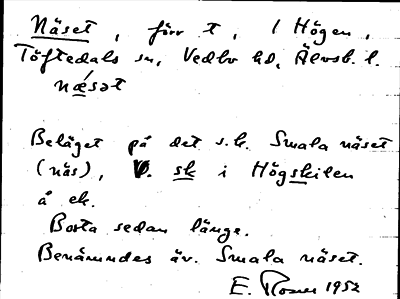 Näset, förr t, 1 Högen,
Töftedals sn, Vedbo hd, Älvsb. l.
nǽsət
Beläget på det s.k. Smala näset
(näs), V. sk i Högskilen
å ek.
Borta sedan länge.
Benämndes äv. Smala näset.
E. Rosen 1952